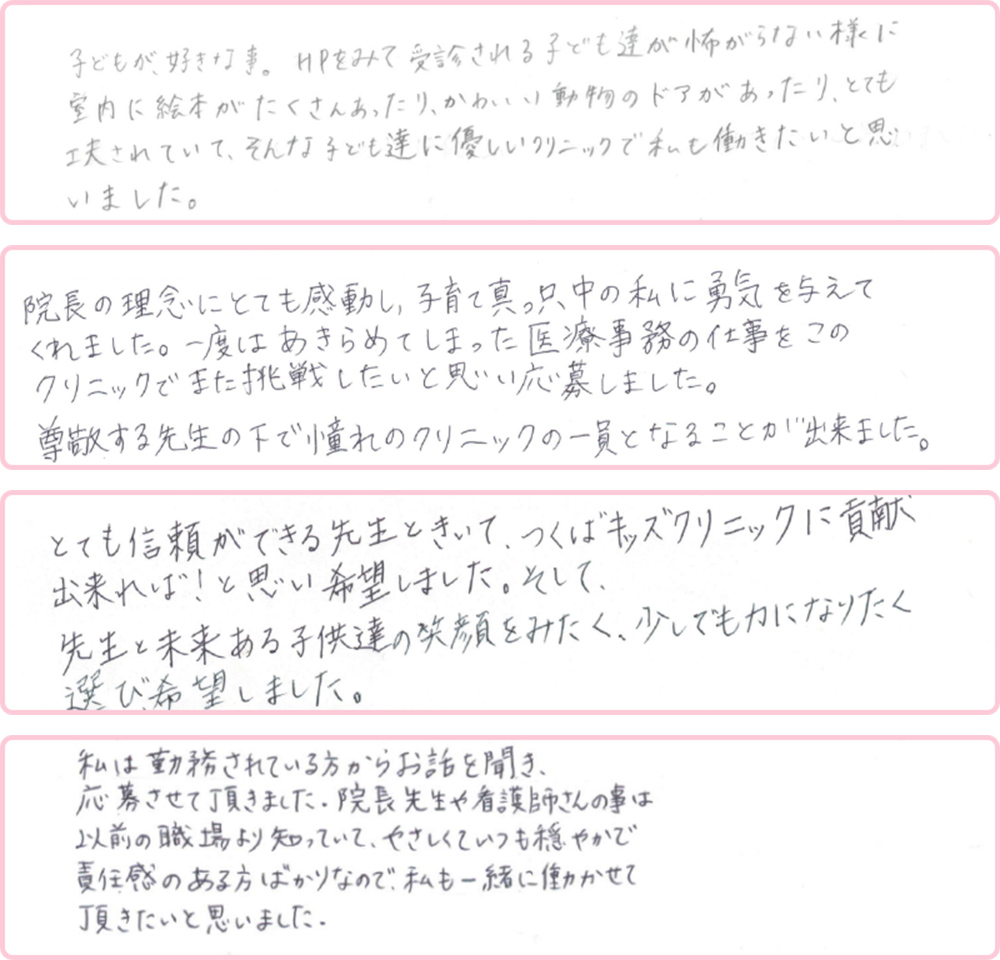 子どもが、好きな事。HPをみて受診される子ども達が怖がらない様に
室内に絵本がたくさんあったり、かわいい動物のドアがあったり、とても
工夫されていて、そんな子ども達に優しいクリニックで私も働きたいと思
いました。
院長の理念にとても感動し、子育て真っ只中の私に勇気を与えて
くれました。一度はあきらめてしまった医療事務の仕事をこの
クリニックでまた挑戦したいと思い応募しました。
尊敬する先生の下で憧れのクリニックの一員となることが出来ました。
とても信頼ができる先生ときいて、つくばキッズクリニックに貢献
出来れば!と思い希望しました。そして、
先生と未来ある子供達の笑顔をみたく、少しでも力になりたく
選び、希望しました。
私は勤務されている方からお話を聞き、
応募させて頂きました。院長先生や看護師さんの事は
以前の職場より知っていて、やさしくていつも穏やかで
責任感のある方ばかりなので、私も一緒に働かせて
頂きたいと思いました。